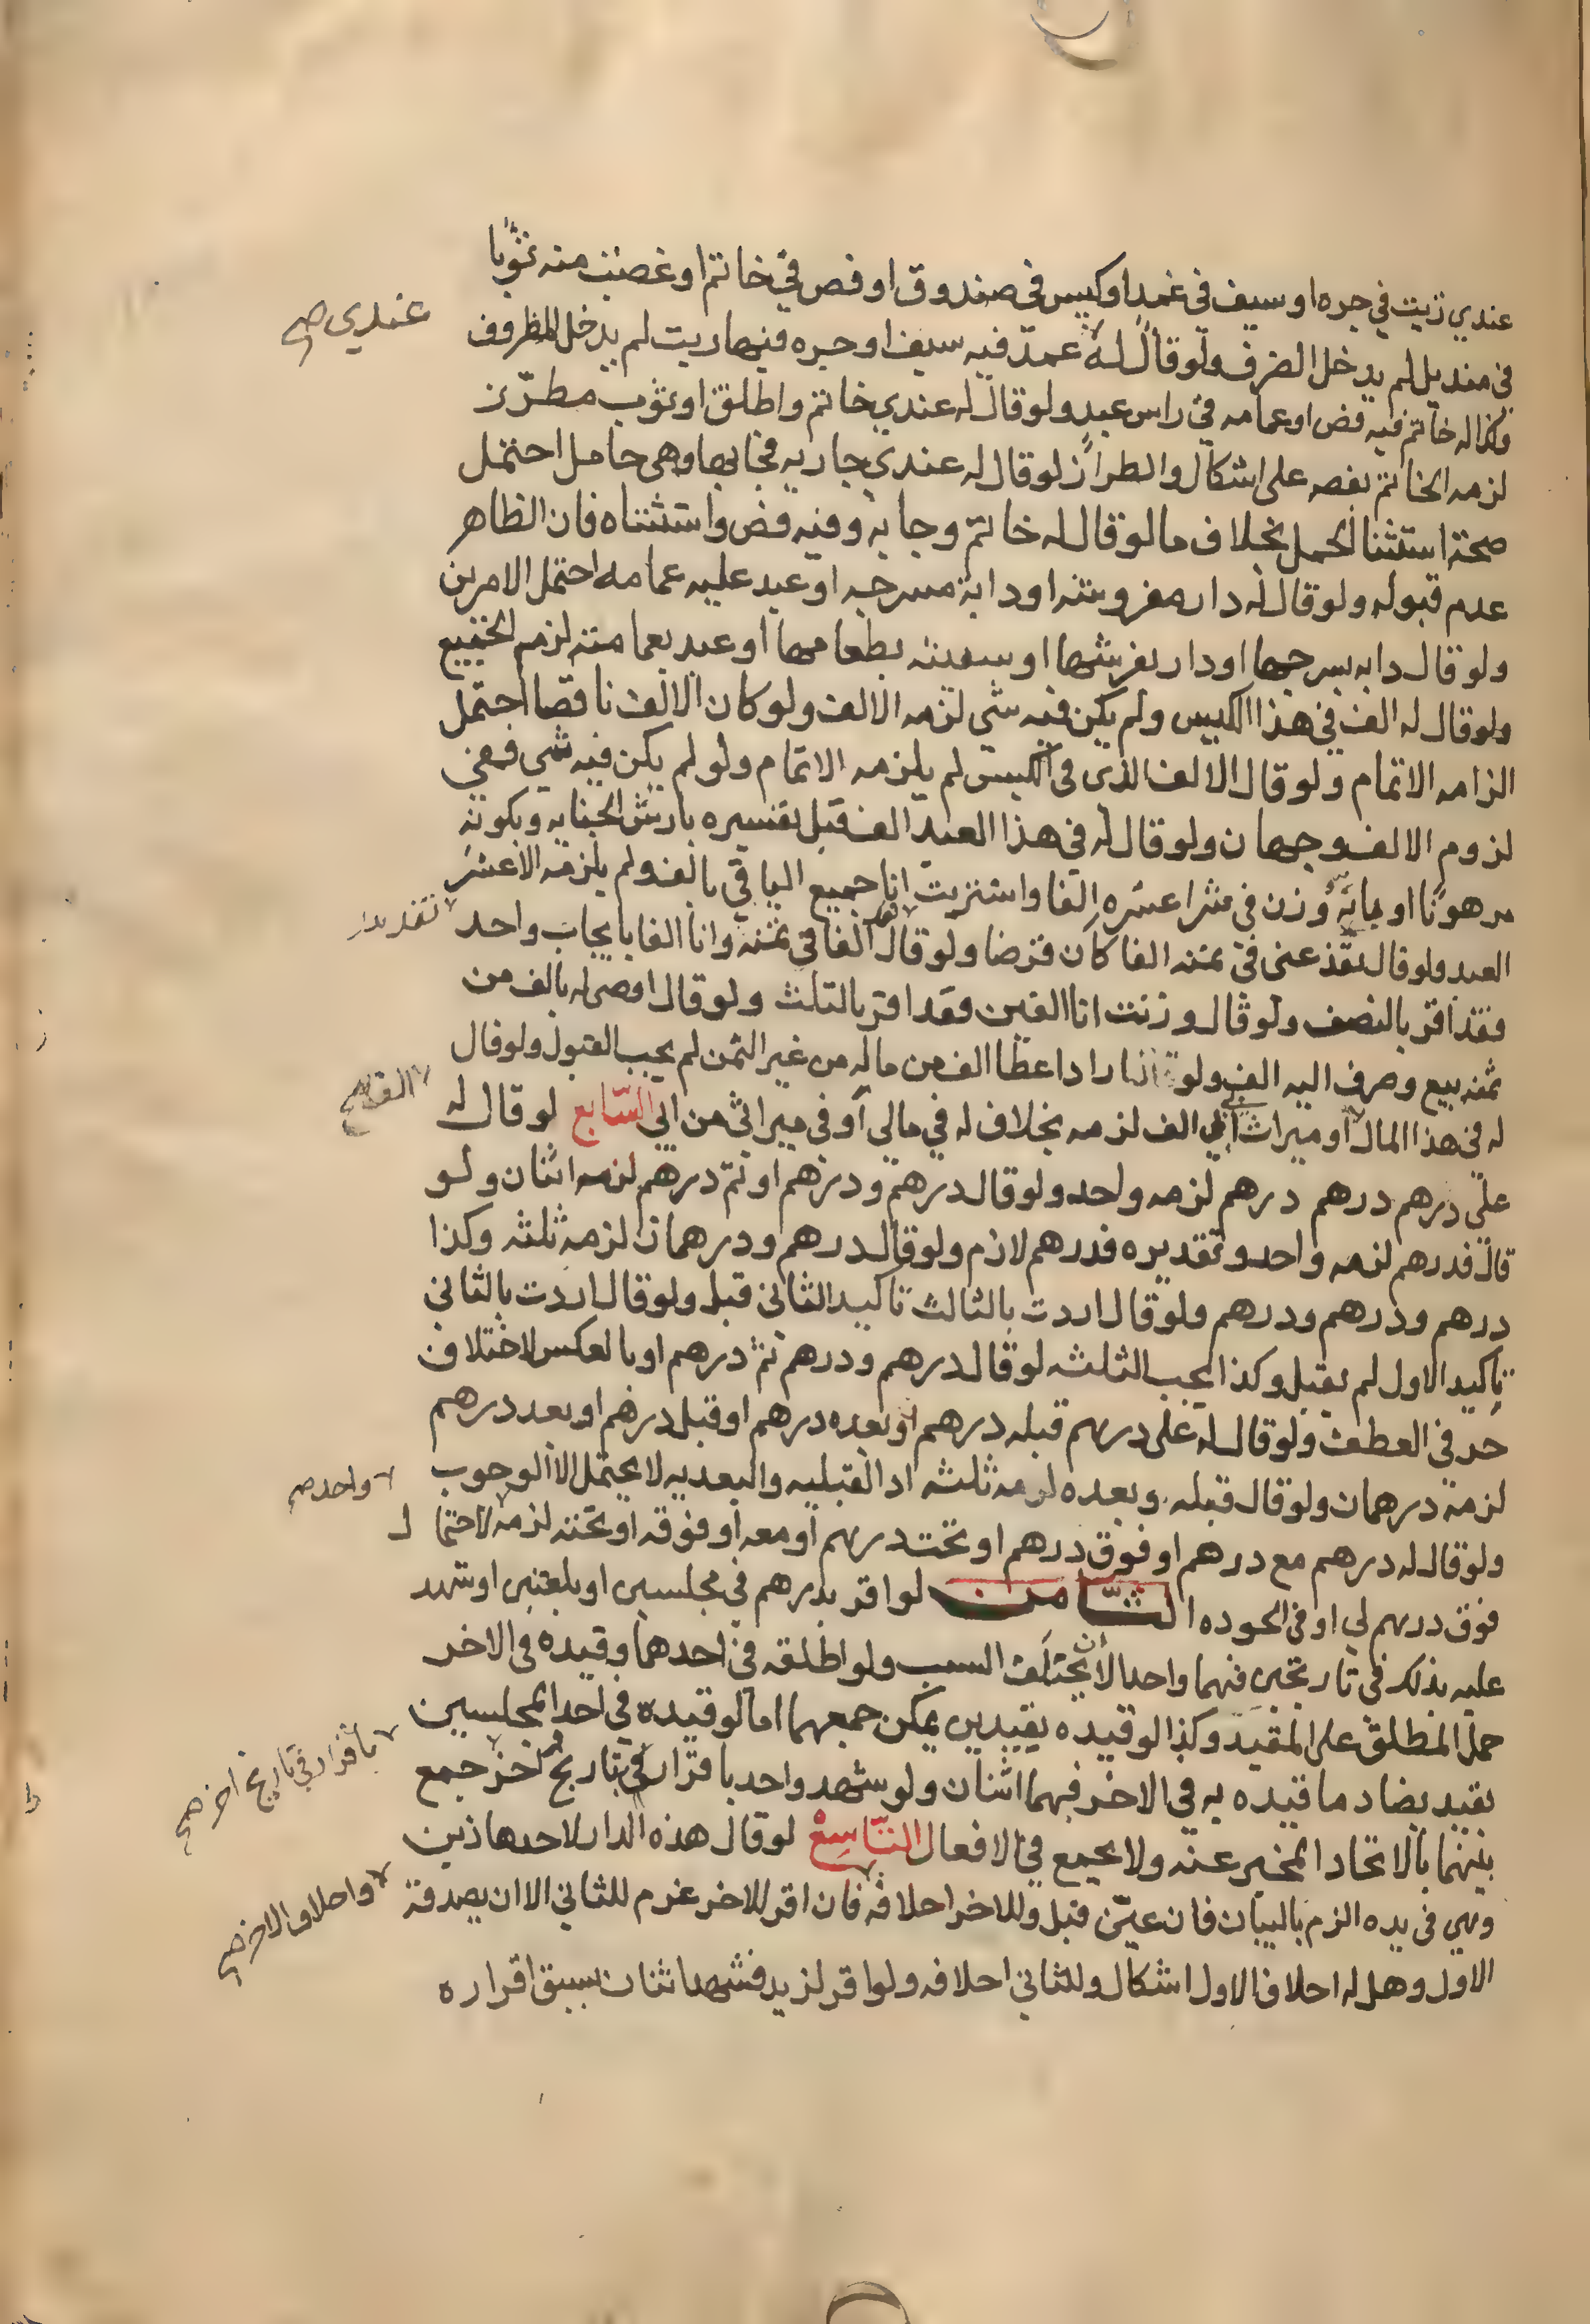 عندي زيت في جره او سيف في غمد او كيس في صندوق او فص في خاتم او غصبت منه ثوبا
في منديل لم يدخل الضرف ولو قال له عمد فيه سيف او جره فيها زيت لم يدخل المظروف
عندي صح
وكذا له خاتم فيه فص او عمامه في راس عبد ولو قال له عندي خاتم واطلق او ثوب مطرّز
لزمه الخاتم بفصه على اشكال والطراز لو قال له عندي جاريه فجا بها وهي حامل احتمل
صحة استثنا الحمل بخلاف ما لو قال له خاتم وجا به وفيه فص واستثناه فان الظاهر
عدم قبوله ولو قال له دار مفروشه او دابة مسرجه او عبد عليه عمامه احتمل الامرين
ولو قال دابه بسرجها او دار بفرشها او سفينه بطعامها او عبد بعمامته لزمه الجميع
ولو قال له الف في هذا الكيس ولم يكن فيه شي لزمه الالف ولو كان الالف ناقصا احتمل
الزامه الاتمام ولو قال الالف الذي في الكيس لم يلزمه الاتمام ولو لم يكن فيه شي ففي
لزوم الالف وجهان ولو قال له في هذا العبد الف قبل تفسيره بارش الجنايه وبكونه
مرهونا او بانه وزن في شرا عشره الفا واشتريت انا جميع الباقي بالف ولم يلزمه الا عشر
العبد ولو قال نقد عني في ثمنه الفا كان قرضا ولو قال الفا في ثمنه وانا الفا بايجاب واحد
فقد اقر بالنصف ولو قال وزنت انا الفين فقد اقر بالثلث ولو قال اوصى له بالف من
ثمنه بيع وصرف اليه الف ولو اراد اعطا الف من ماله من غير الثمن لم يجب القبول ولو قال
له في هذا المال او ميراث ابي الف لزمه بخلاف له في مالي او في ميراثي من ابي السّابع لو قال له
عليّ درهم درهم درهم لزمه واحد ولو قال درهم ودرهم او ثم درهم لزمه اثنان ولو
قال فدرهم لزمه واحد وتقديره فدرهم لازم ولو قال درهم ودرهمان لزمه ثلثه وكذا
درهم ودرهم ودرهم ولو قال اردت بالثالث تاكيد الثاني قبل ولو قال اردت بالثاني
تاكيد الاول لم يقبل وكذا يجب الثلثه لو قال درهم ودرهم ثم درهم او بالعكس لاختلاف
حرفي العطف ولو قال له على درهم قبله درهم او بعده درهم او قبل درهم او بعد درهم
لزمه درهمان ولو قال قبله وبعده لزمه ثلثه اذ القبليه والبعديه لا يحتمل الا الوجوب
ولو قال له درهم مع درهم او فوق درهم او تحت درهم او معه او فوقه او تحته لزمه لاحتمال
واحد صح
فوق درهم لي او في الجوده الثّامن لو اقر بدرهم في مجلسين او بلغتين او شهد
عليه بذلك في تاريخين فهما واحد الا ان يختلف السبب ولو اطلقه في احدهما وقيده في الاخر
حمل المطلق على المقيد وكذا لو قيده بقيدين يمكن جمعهما اما لو قيده في احد المجلسين
بقيد يضاد ما قيده به في الاخر فهما اثنان ولو شهد واحد باقرار في بتاريخ اخر جمع
باقرار في تاريخ اخر صح
بينهما بالاتحاد المخبر عنه ولا يجمع في الافعال التّاسع لو قال هذه الدار لاحد هاذين
وهي في يده الزم بالبيان فان عيّن قبل وللاخر احلافه فان اقر للاخر غرم للثاني الا ان يصدقه
واحلاف الاخر صح
الاول وهل له احلاف الاول اشكال وللثاني احلافه ولو اقر لزيد فشهد اثنان بسبق اقراره